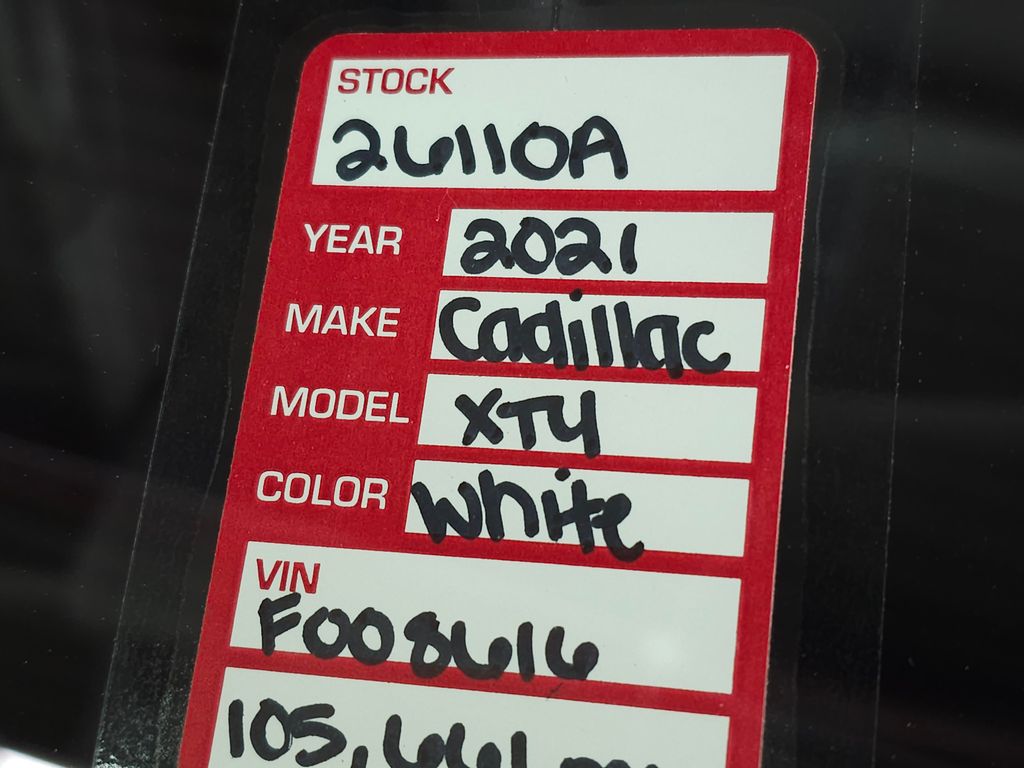 STOCK
26110A
YEAR 2021
MAKE Cadillac
MODEL XT4
COLOR White
VIN
F008616
105,661